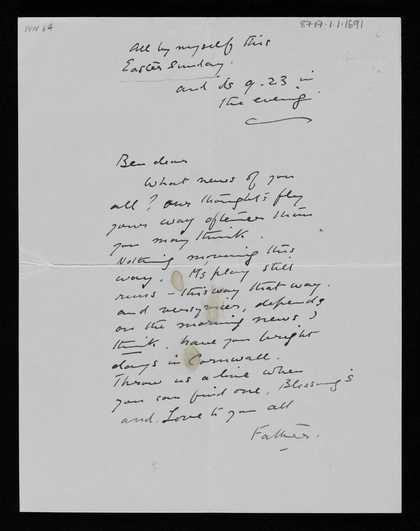 8717.1.1.1691
All by myself this
Easter Sunday.
and its 9.23 in
the evening.
Ben dear
What news of you
all? Our thoughts fly
your way oftener than
you may think.
Nothing moving this
way. My play still
runs - this way that way.
and, depends
on the morning news I
think. Have you bright
days in Cornwall.
Throw us a line when
you can find one. Blessing's
and Love to you all
Father.